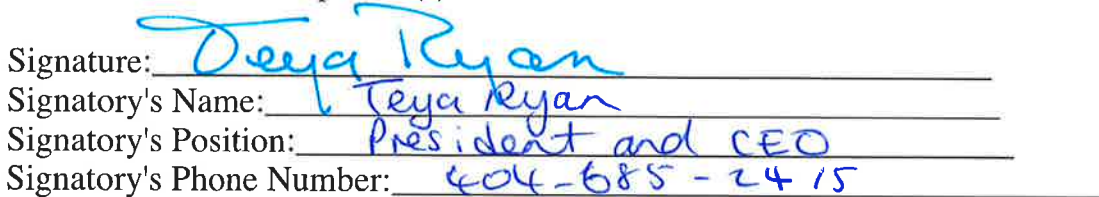 Signature: Teya Ryan
Signatory's Name: Teya Ryan
Signatory's Position: President and CEO
Signatory's Phone Number: 404-685-2415